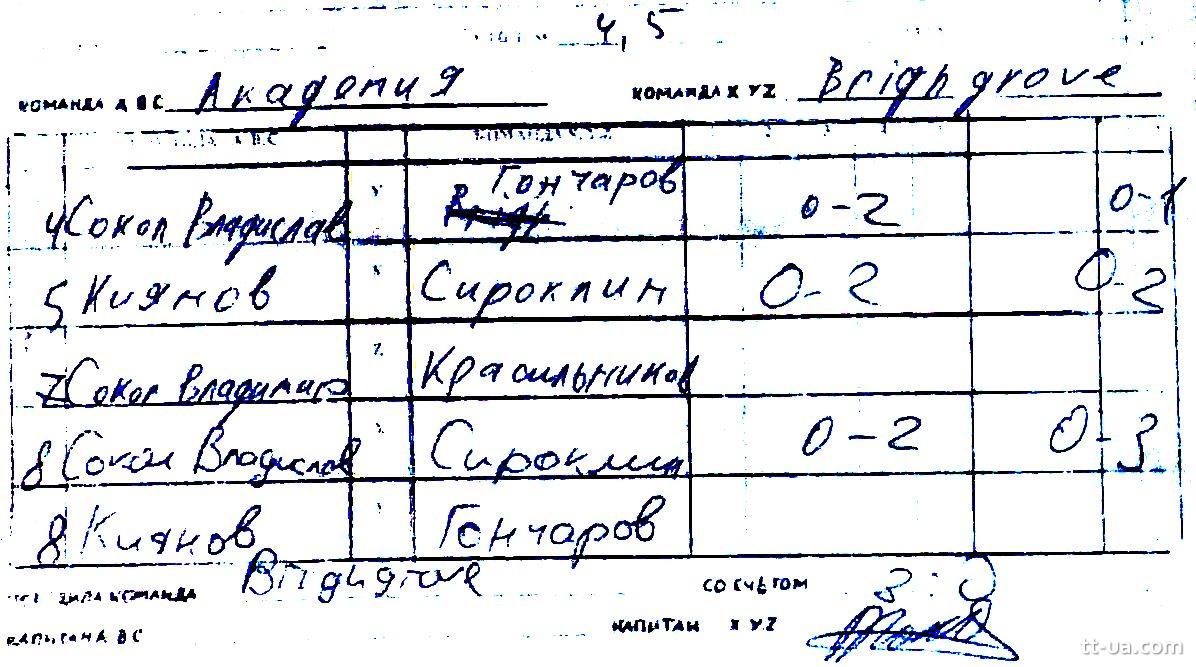 4, 5
КОМАНДА А В С Академия КОМАНДА X Y Z Brighgrove
В С КОМАНДА X Y Z
4 Сокол Владислав Y Гончаров 0-2 0-1
5 Киянов X Сироклин 0-2 0-2
7 Сокол Владимир Z Красильников
8 Сокол Владислав X Сироклин 0-2 0-3
8 Киянов Y Гончаров
КОМАНДА Brighgrove СО СЧЕТОМ 3:0
КАПИТАН В С КАПИТАН X Y Z
tt-ua.com